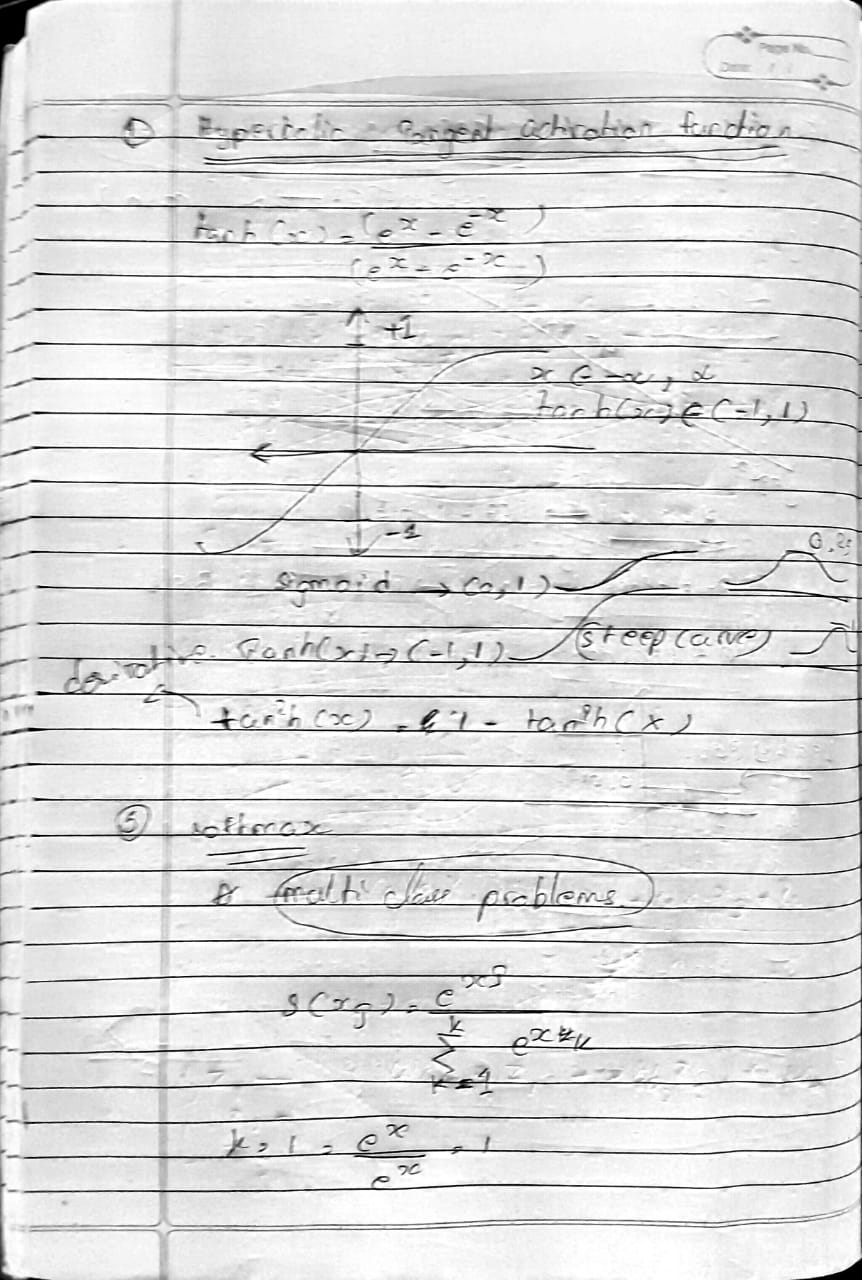 Page No.
Date: / /
① Hyperbolic Tangent activation function
tanh (x) = (e^x - e^-x)
(e^x - e^-x)
+1
x ∈ -∝, ∝
tanh(x) ∈ (-1, 1)
-1
0.25
sigmoid → (0, 1)
(steep curve)
derivative Tanh(x) → (-1, 1)
tan²h (x) = 1 - tan²h (x)
⑤ softmax
multi class problems
S(xj) = e^xj
K
Σ e^xk
k=1
k = 1 = e^x = 1
e^x